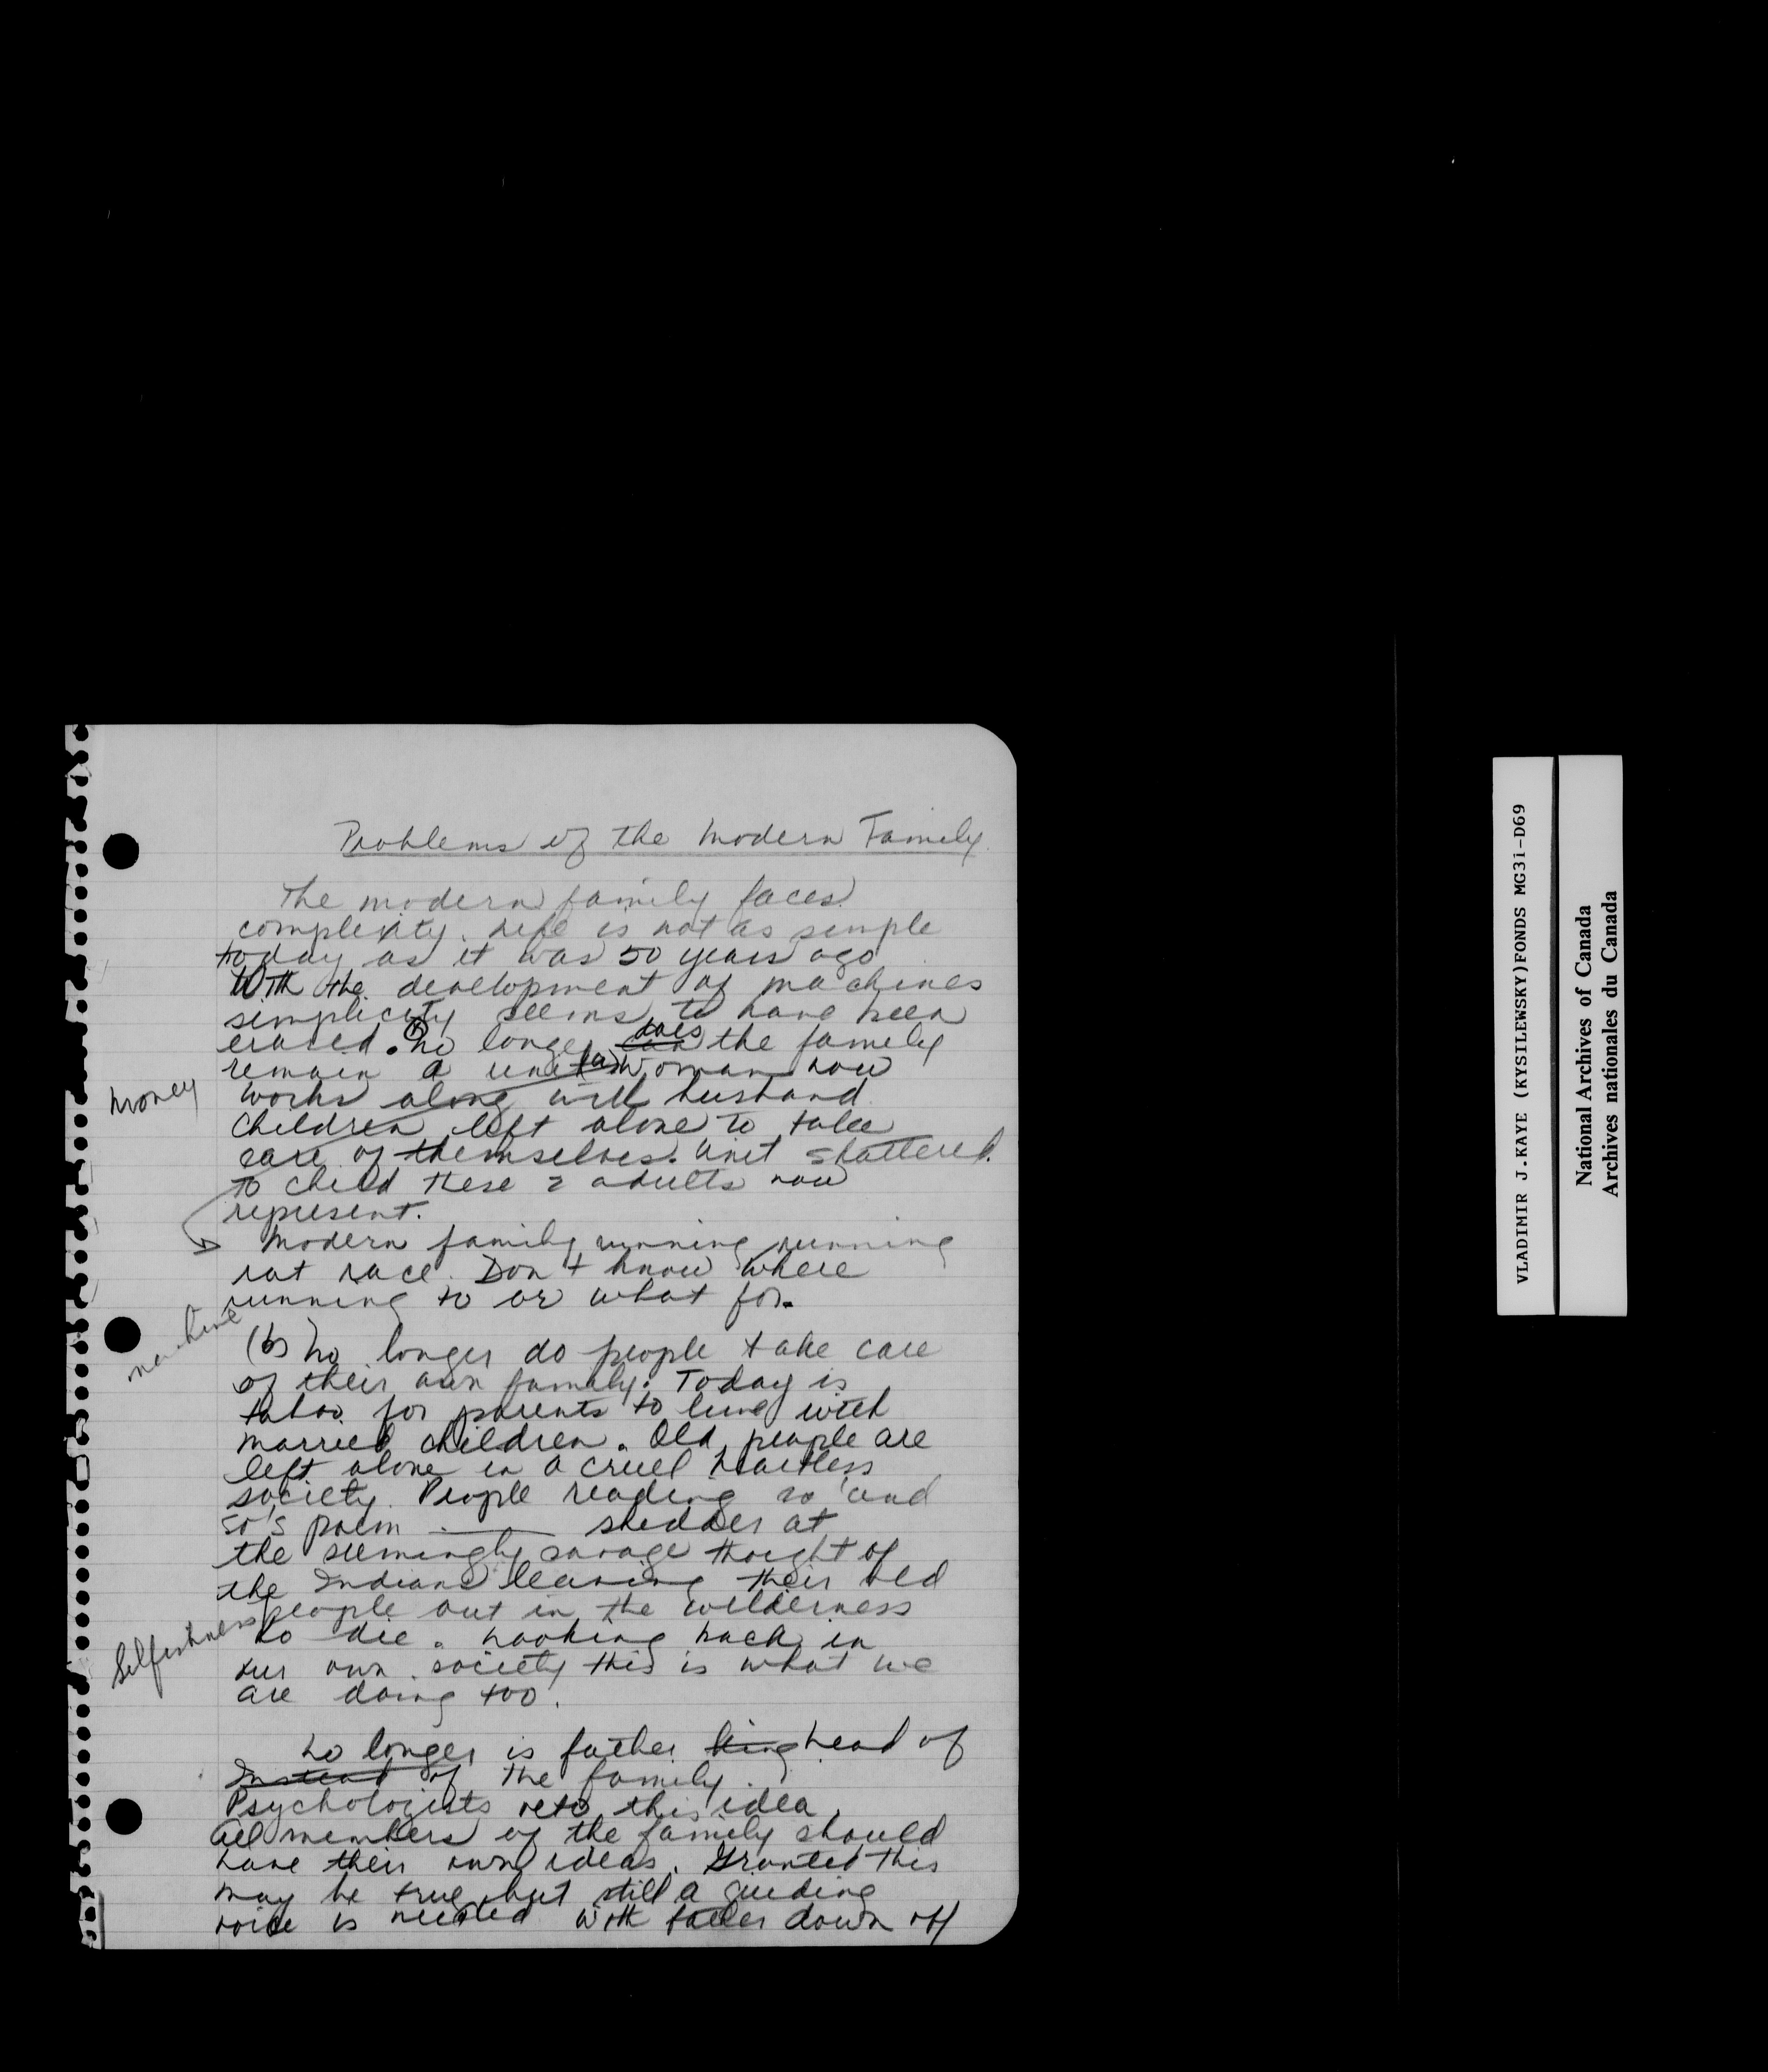 Problems of the Modern Family.
The modern family faces
complexity. Life is not as simple
today as it was 50 years ago
With the development of machines
simplicity seems to have been
erased. No longer can does the family
remain a unit (a) Woman now
Money
works along with husband.
Children left alone to take
care of themselves. Unit shattered.
To child these 2 adults now
represent.
Modern family running running
rat race. Don't know where
running to or what for.
machine
(b) No longer do people take care
of their own family. Today is
taboo for parents to live with
married children. Old people are
left alone in a cruel heartless
society. People reading so and
so's poem — shudder at
the seemingly savage thought of
the Indians leaving their old
people out in the wilderness
Selfishness
to die. Looking back in
our own society this is what we
are doing too.
No longer is father king head of
Instead of the family.
Psychologists veto this idea.
All members of the family should
have their own ideas. Granted this
may be true but still a guiding
voice is needed With father down off
VLADIMIR J.KAYE (KYSILEWSKY)FONDS MG31-D69
National Archives of Canada
Archives nationales du Canada